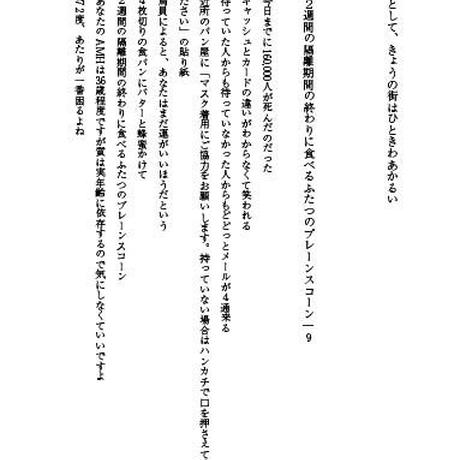 として、きょうの街はひときわあかるい
2週間の隔離期間の終わりに食べるふたつのプレーンスコーン|9
今日までに160,000人が死んだのだった
キャッシュとカードの違いがわからなくて笑われる
待っていた人からも待っていなかった人からもどどっとメールが4通来る
近所のパン屋に「マスク着用にご協力をお願いします。持っていない場合はハンカチで口を押さえて
ださい」の貼り紙
局員によると、あなたはまだ運がいいほうだという
4枚切りの食パンにバターと蜂蜜かけて
2週間の隔離期間の終わりに食べるふたつのプレーンスコーン
あなたのAMHは36歳程度ですが質は実年齢に依存するので気にしなくていいですよ
72度、あたりが一番困るよね